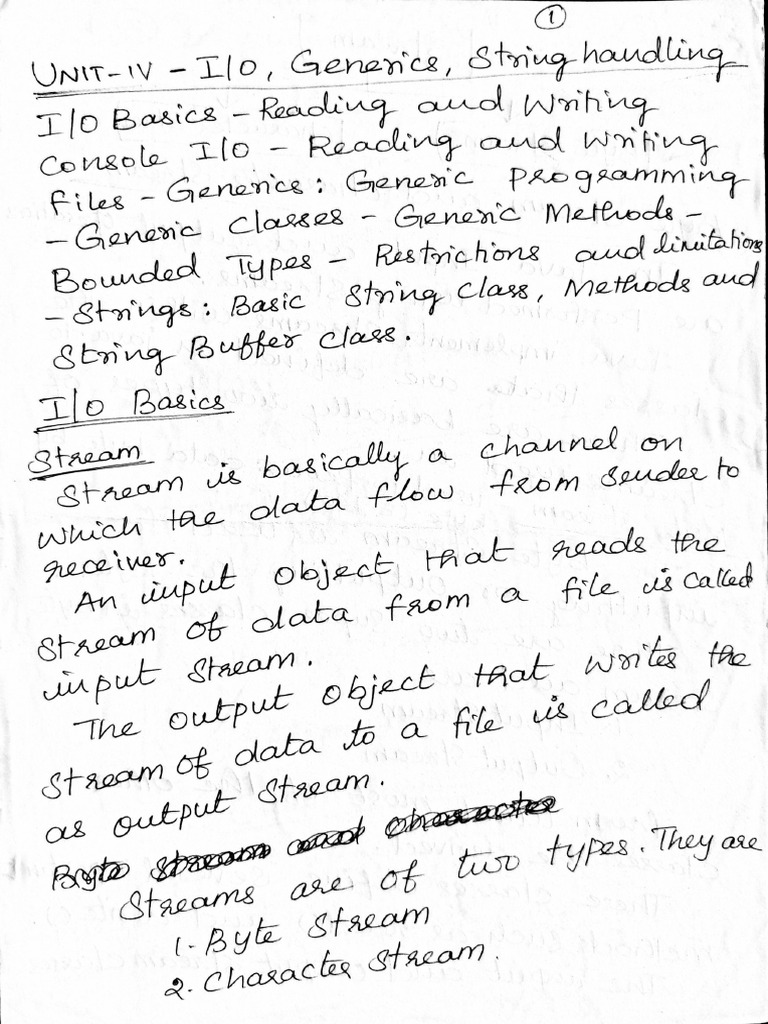 1
UNIT-IV - I/O, Generics, String handling
I/O Basics - Reading and Writing
Console I/O - Reading and Writing
files - Generics: Generic programming
- Generic classes - Generic Methods -
Bounded Types - Restrictions and limitations
- Strings: Basic String class, Methods and
String Buffer class.
I/O Basics
Stream
Stream is basically a channel on
which the data flow from sender to
receiver.
An input object that reads the
stream of data from a file is called
input stream.
The output object that writes the
stream of data to a file is called
as output stream.
Byte stream and character
Streams are of two types. They are
1. Byte Stream
2. Character Stream.